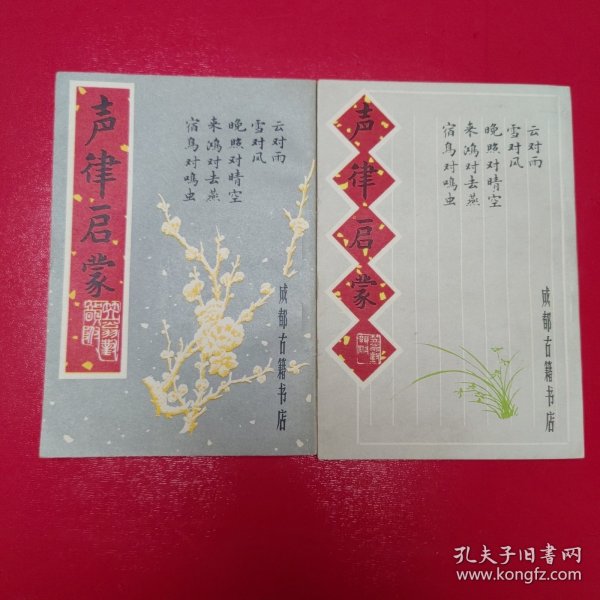 声律启蒙
云对雨
雪对风
晚照对晴空
来鸿对去燕
宿鸟对鸣虫
成都古籍书店
声律启蒙
云对雨
雪对风
晚照对晴空
来鸿对去燕
宿鸟对鸣虫
成都古籍书店
孔夫子旧书网
www.kongfz.com